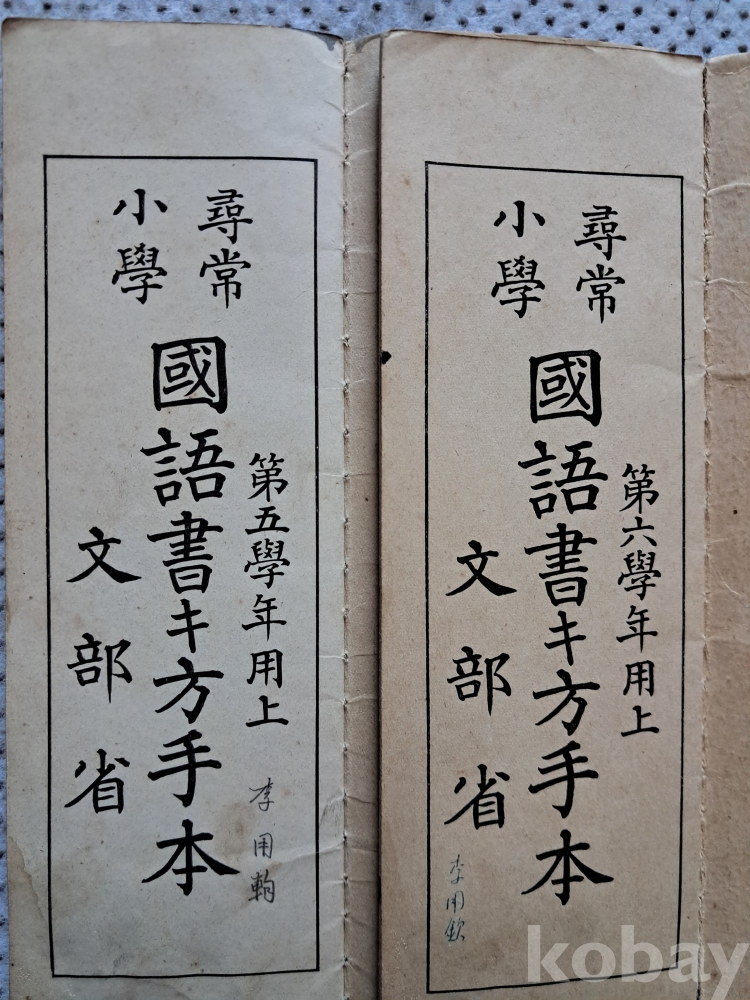 尋常
小學
國語書キ方手本
第五學年用上
文部省
李用
尋常
小學
國語書キ方手本
第六學年用上
文部省
李用欽
kobay